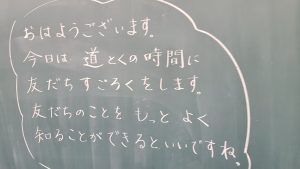 おはようございます。
今日は 道とくの時間に
友だちすごろくをします。
友だちのことを もっと よく
知ることができるといいですね。